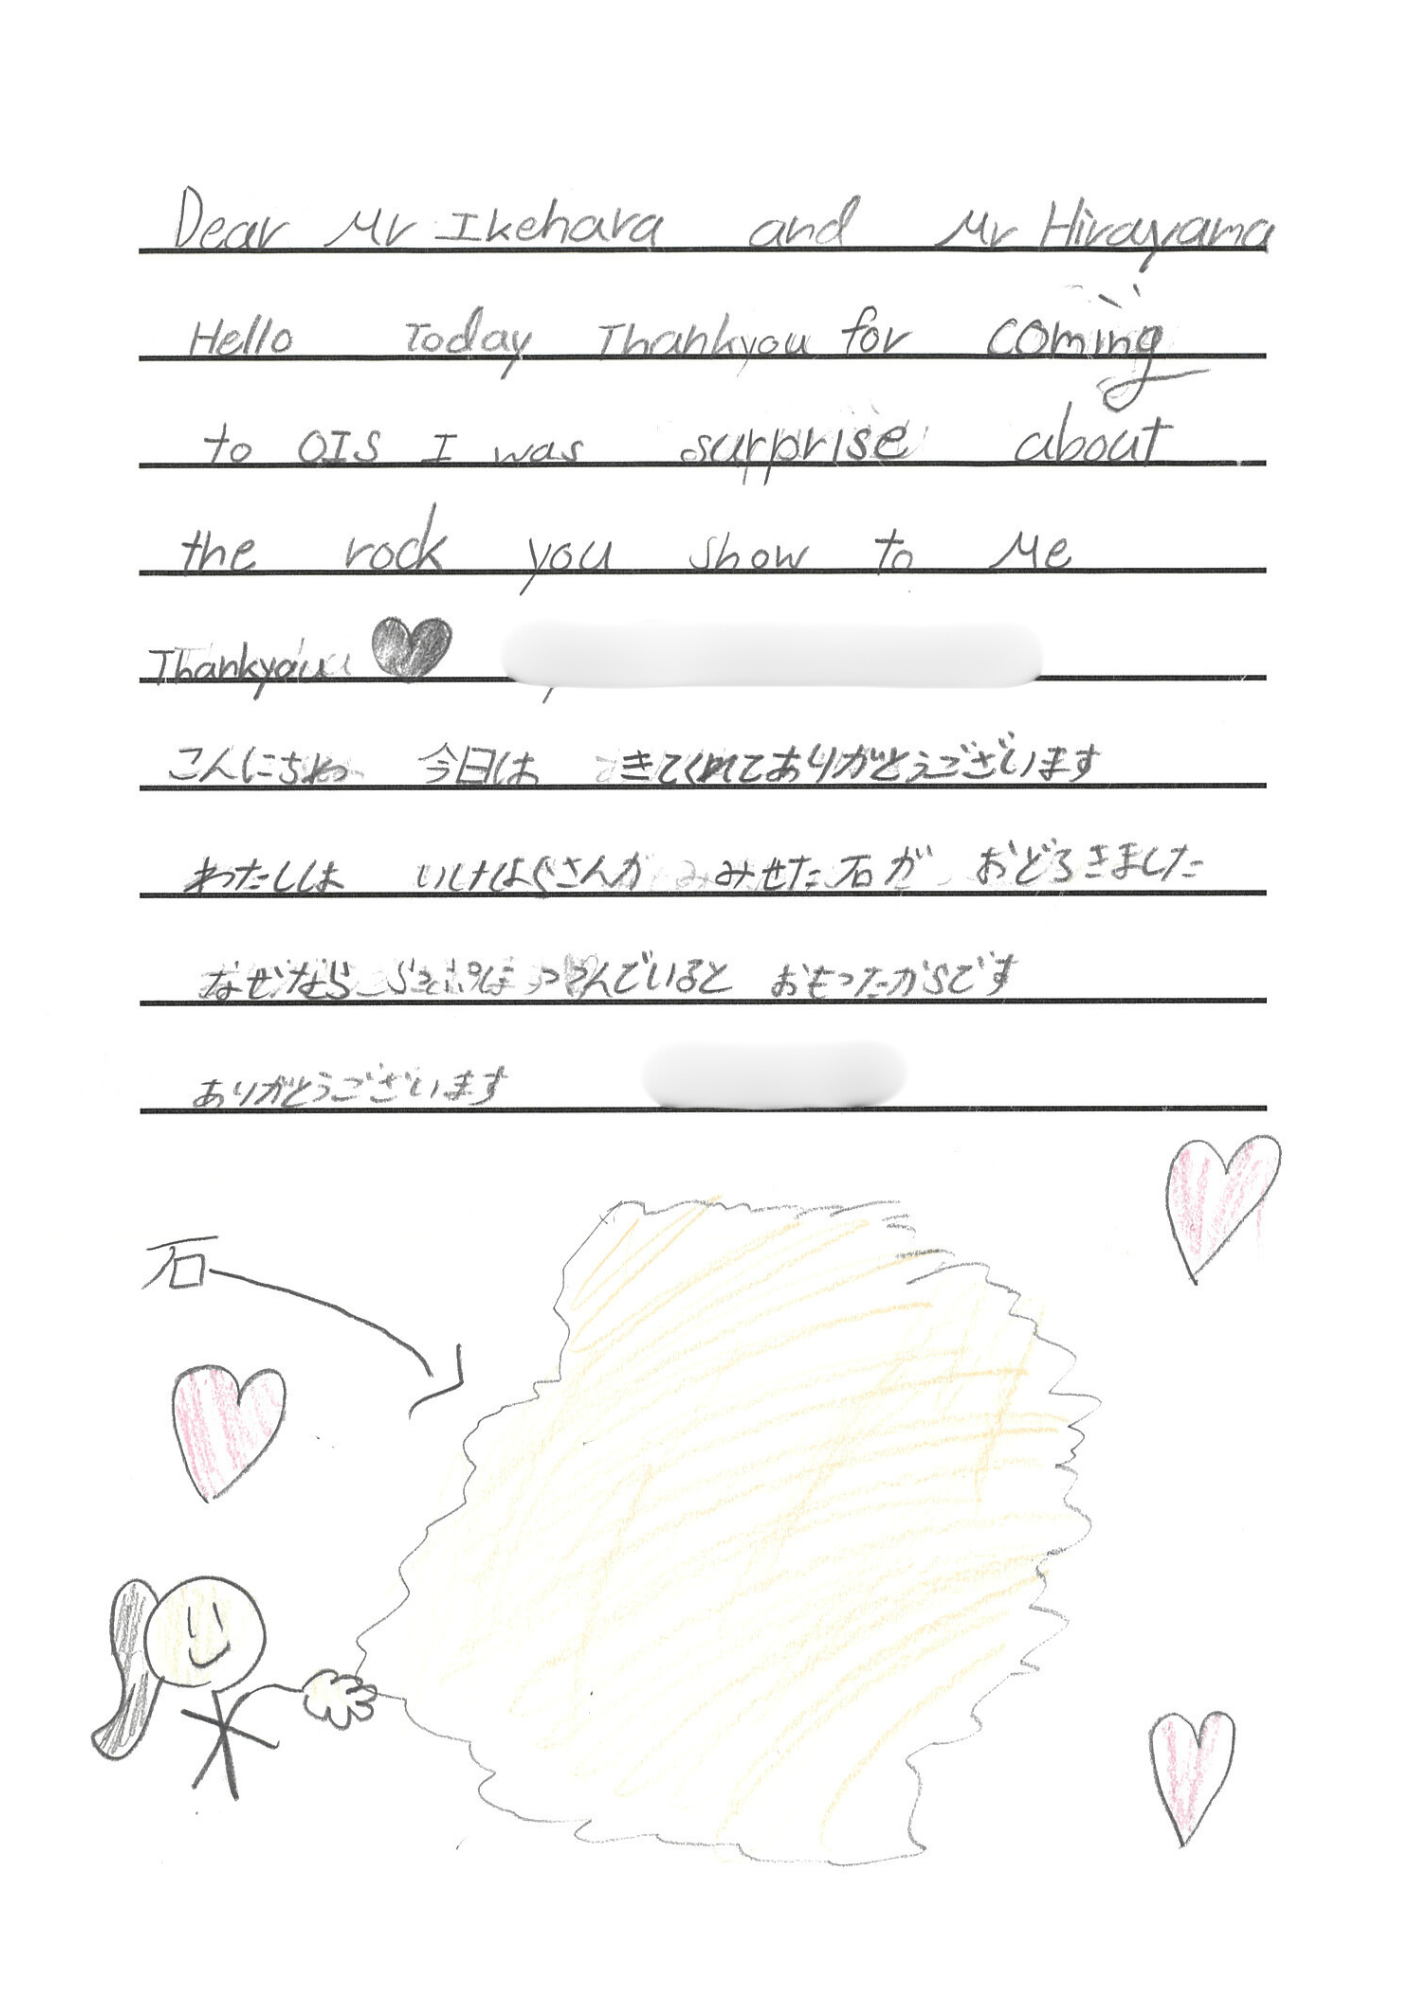 Dear Mr Ikehara and Mr Hirayama
Hello Today Thankyou for coming
to OIS I was surprise about
the rock you show to Me
Thankyou
こんにちわ 今日は きてくれてありがとうございます
わたしは さんが みせた石が おどろきました
なぜなら んでいると おもったからです
ありがとうございます
石